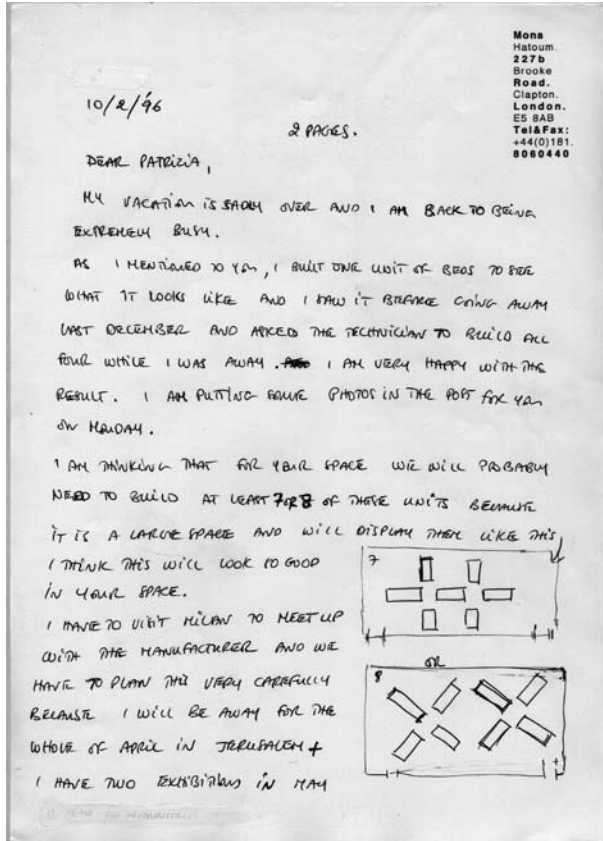 Mona
Hatoum.
227b
Brooke
Road.
Clapton.
London.
E5 8AB
Tel&Fax:
+44(0)181.
8060440
10/2/96
2 PAGES.
DEAR PATRIZIA,
MY VACATION IS SADLY OVER AND I AM BACK TO BEING
EXTREMELY BUSY.
AS I MENTIONED TO YOU, I BUILT ONE UNIT OF BEDS TO SEE
WHAT IT LOOKS LIKE AND I SAW IT BEFORE GOING AWAY
LAST DECEMBER AND ASKED THE TECHNICIAN TO BUILD ALL
FOUR WHILE I WAS AWAY. I AM VERY HAPPY WITH THE
RESULT. I AM PUTTING SOME PHOTOS IN THE POST FOR YOU
ON MONDAY.
I AM THINKING THAT FOR YOUR SPACE WE WILL PROBABLY
NEED TO BUILD AT LEAST 7 OR 8 OF THESE UNITS BECAUSE
IT IS A LARGE SPACE AND WILL DISPLAY THEM LIKE THIS
I THINK THIS WILL LOOK SO GOOD
IN YOUR SPACE.
I HAVE TO VISIT MILAN TO MEET UP
WITH THE MANUFACTURER AND WE
HAVE TO PLAN THIS VERY CAREFULLY
BECAUSE I WILL BE AWAY FOR THE
WHOLE OF APRIL IN JERUSALEM +
I HAVE TWO EXHIBITIONS IN MAY
7
OR
8